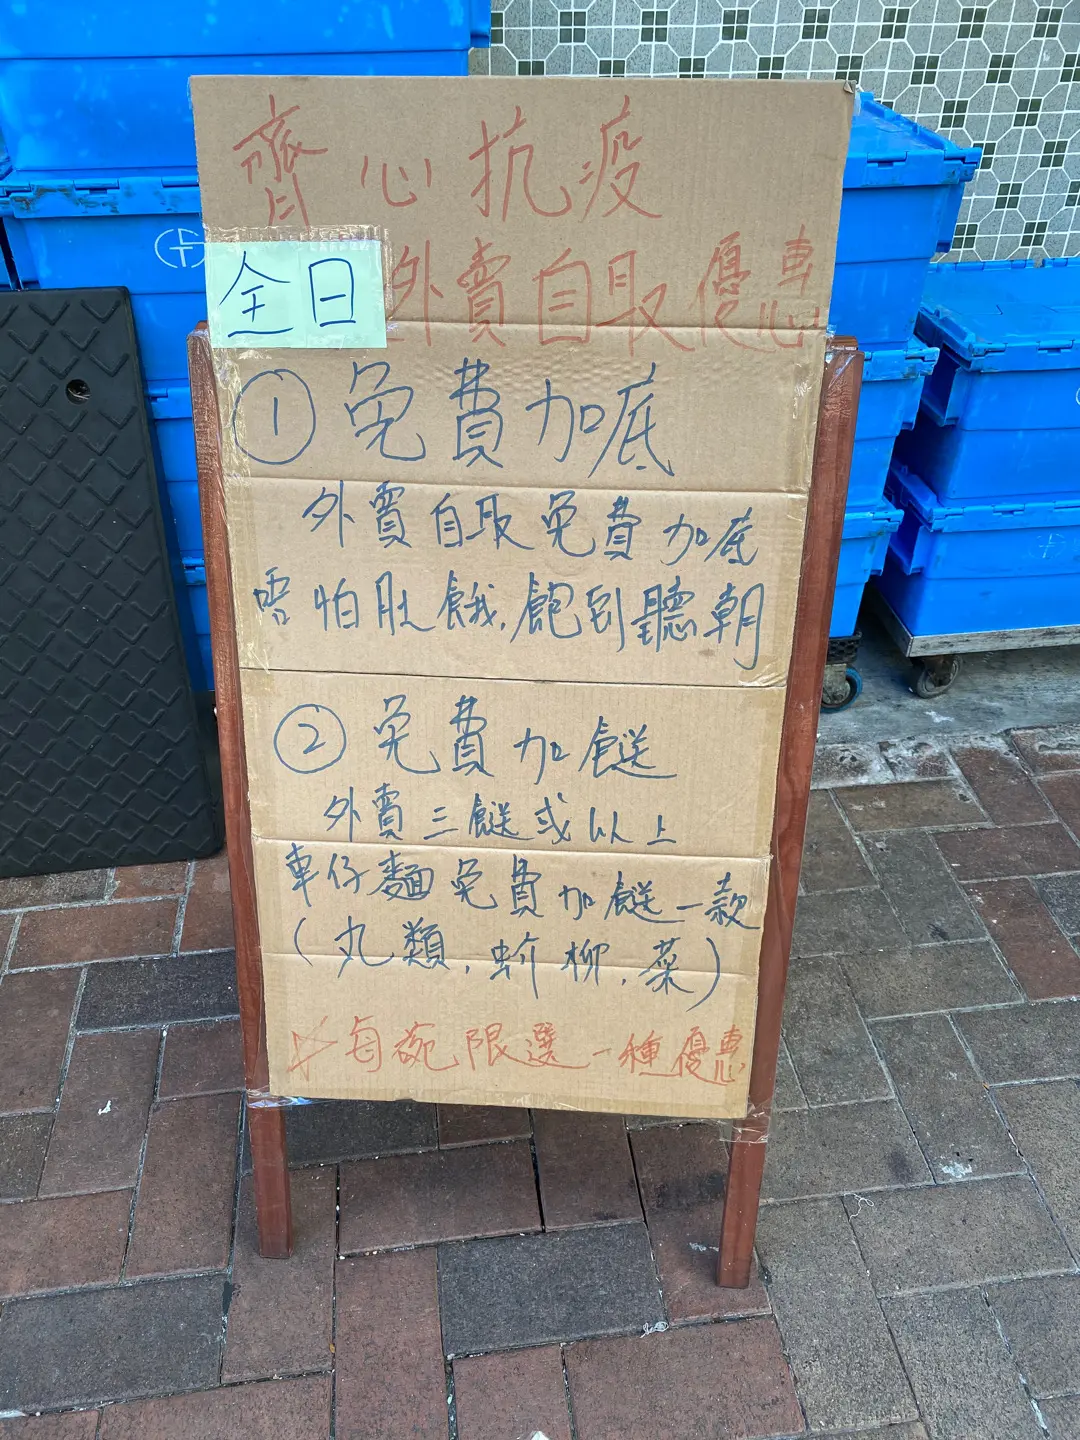 齊心抗疫
全日 外賣自取優惠
① 免費加底
外賣自取免費加底
唔怕肚餓,飽到聽朝
② 免費加餸
外賣三餸或以上
車仔麵免費加餸一款
(丸類,蚧柳,菜)
☆每碗限選一種優惠